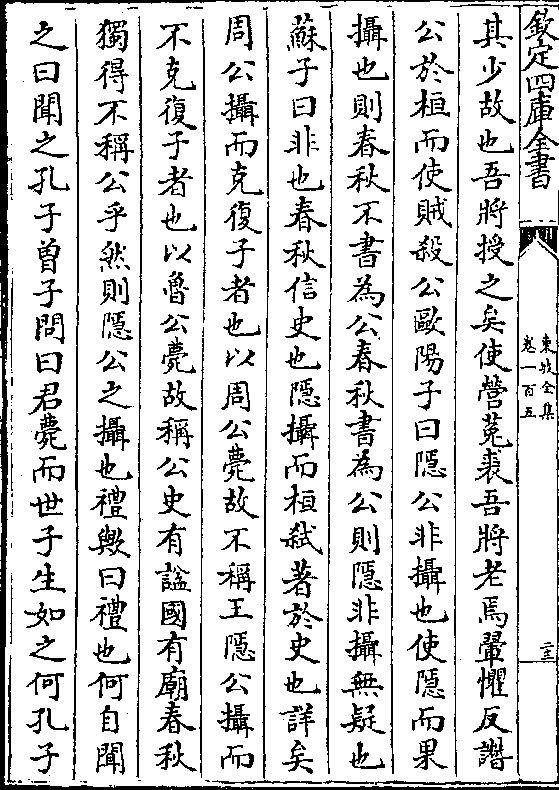 欽定四庫全書
東坡全集
卷一百五
三
其少故也吾將授之矣使營菟裘吾將老焉翬懼反譖
公於桓而使賊殺公歐陽子曰隱公非攝也使隱而果
攝也則春秋不書為公春秋書為公則隱非攝無疑也
蘇子曰非也春秋信史也隱攝而桓弑著於史也詳矣
周公攝而克復子者也以周公薨故不稱王隱公攝而
不克復子者也以魯公薨故稱公史有諡國有廟春秋
獨得不稱公乎然則隱公之攝也禮歟曰禮也何自聞
之曰聞之孔子曽子問曰君薨而世子生如之何孔子